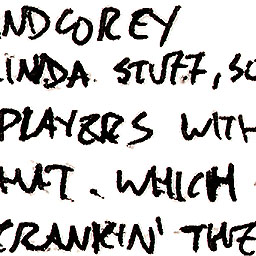 ANDCOREY
KINDA STUFF, SO
PLAYERS WITH
THAT. WHICH
CRANKIN' THE